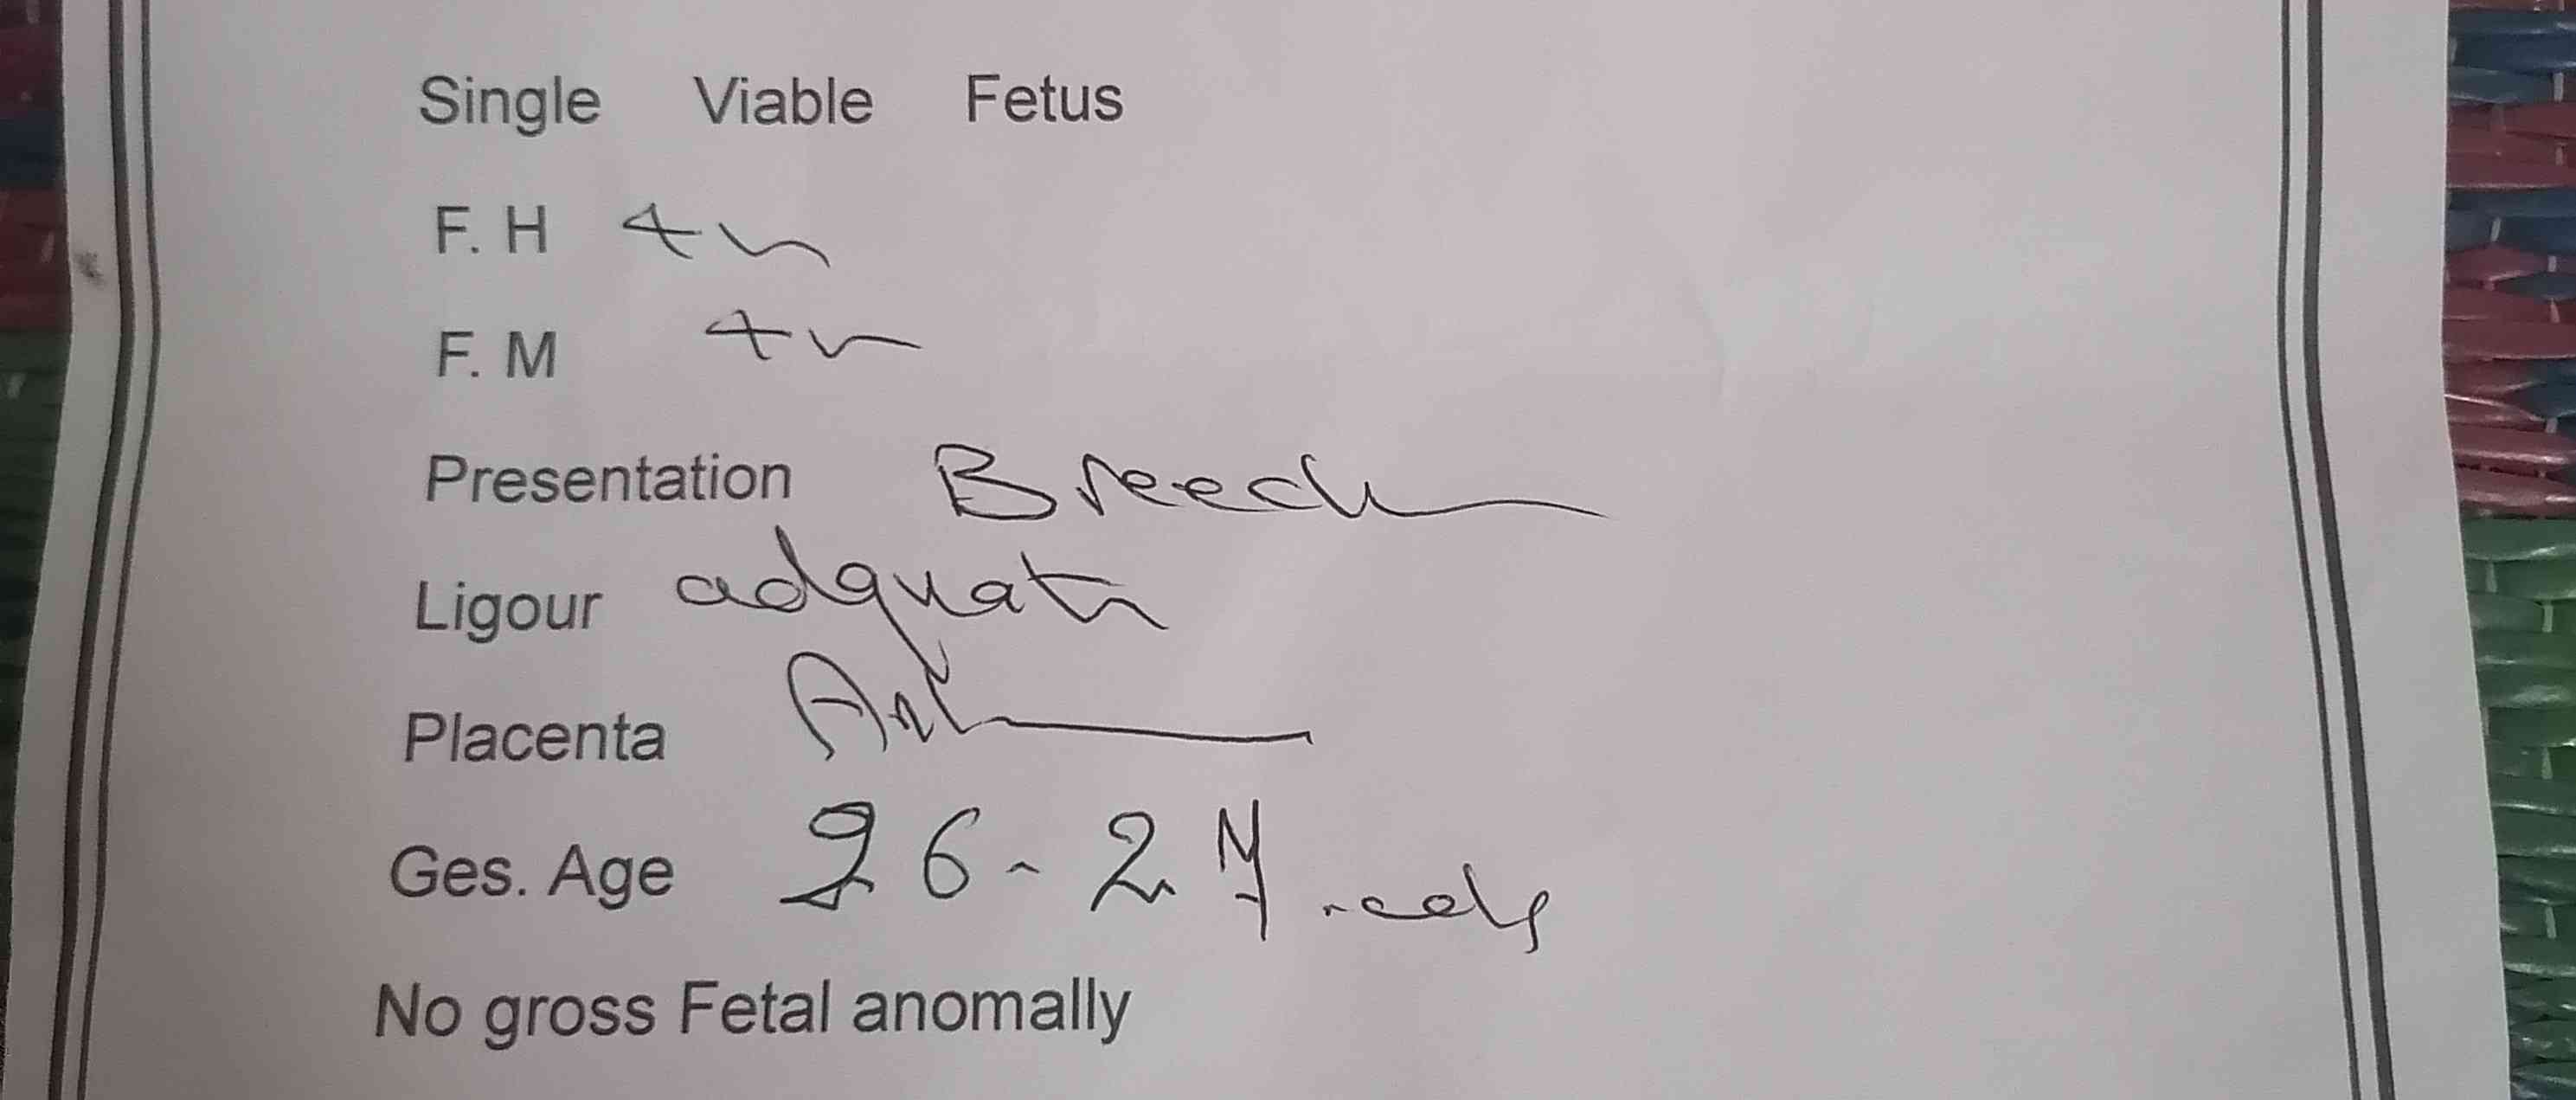 Single Viable Fetus
F. H +ve
F. M +ve
Presentation Breech
Ligour adquate
Placenta Ant
Ges. Age 26-27 weeks
No gross Fetal anomally